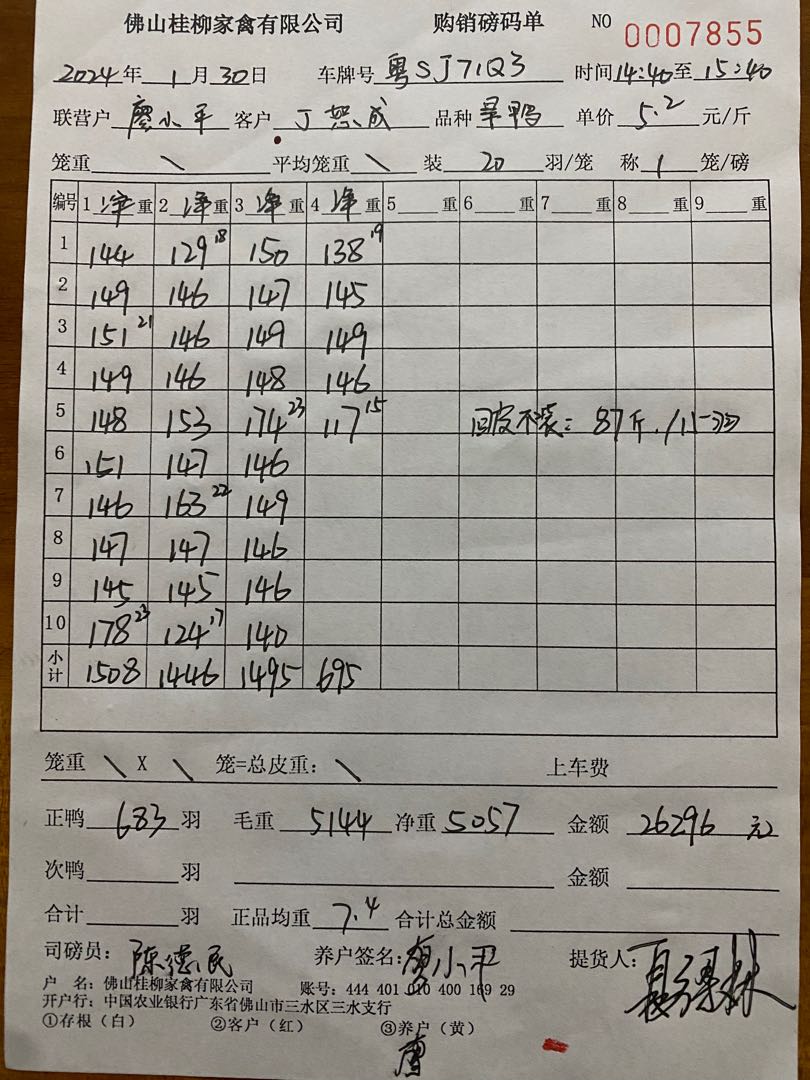 佛山桂柳家禽有限公司 购销磅码单 NO 0007855
2024年 1月30日 车牌号 粤SJ71Q3 时间14:40至15:40
联营户 廖小平 客户 丁恕成 品种 旱鸭 单价 5.2 元/斤
笼重 \ 平均笼重 \ 装 20 羽/笼 称 1 笼/磅
编号 1 净 重 2 净 重 3 净 重 4 净 重 5 重 6 重 7 重 8 重 9 重
1 144 129 18 150 138 19
2 149 146 147 145
3 151 21 146 149 149
4 149 146 148 146
5 148 153 174 23 117 15 回皮不装: 87斤
6 151 147 146
7 146 163 22 149
8 147 147 146
9 145 145 146
10 178 23 124 17 140
小计 1508 1446 1495 695
笼重 \ X \ 笼=总皮重: \ 上车费
正鸭 683 羽 毛重 5144 净重 5057 金额 26296 元
次鸭 羽 金额
合计 羽 正品均重 7.4 合计总金额
司磅员: 陈德民 养户签名: 廖小平 提货人:
户 名: 佛山桂柳家禽有限公司 账号: 444 401 010 400 169 29
开户行: 中国农业银行广东省佛山市三水区三水支行
①存根(白) ②客户(红) ③养户(黄)